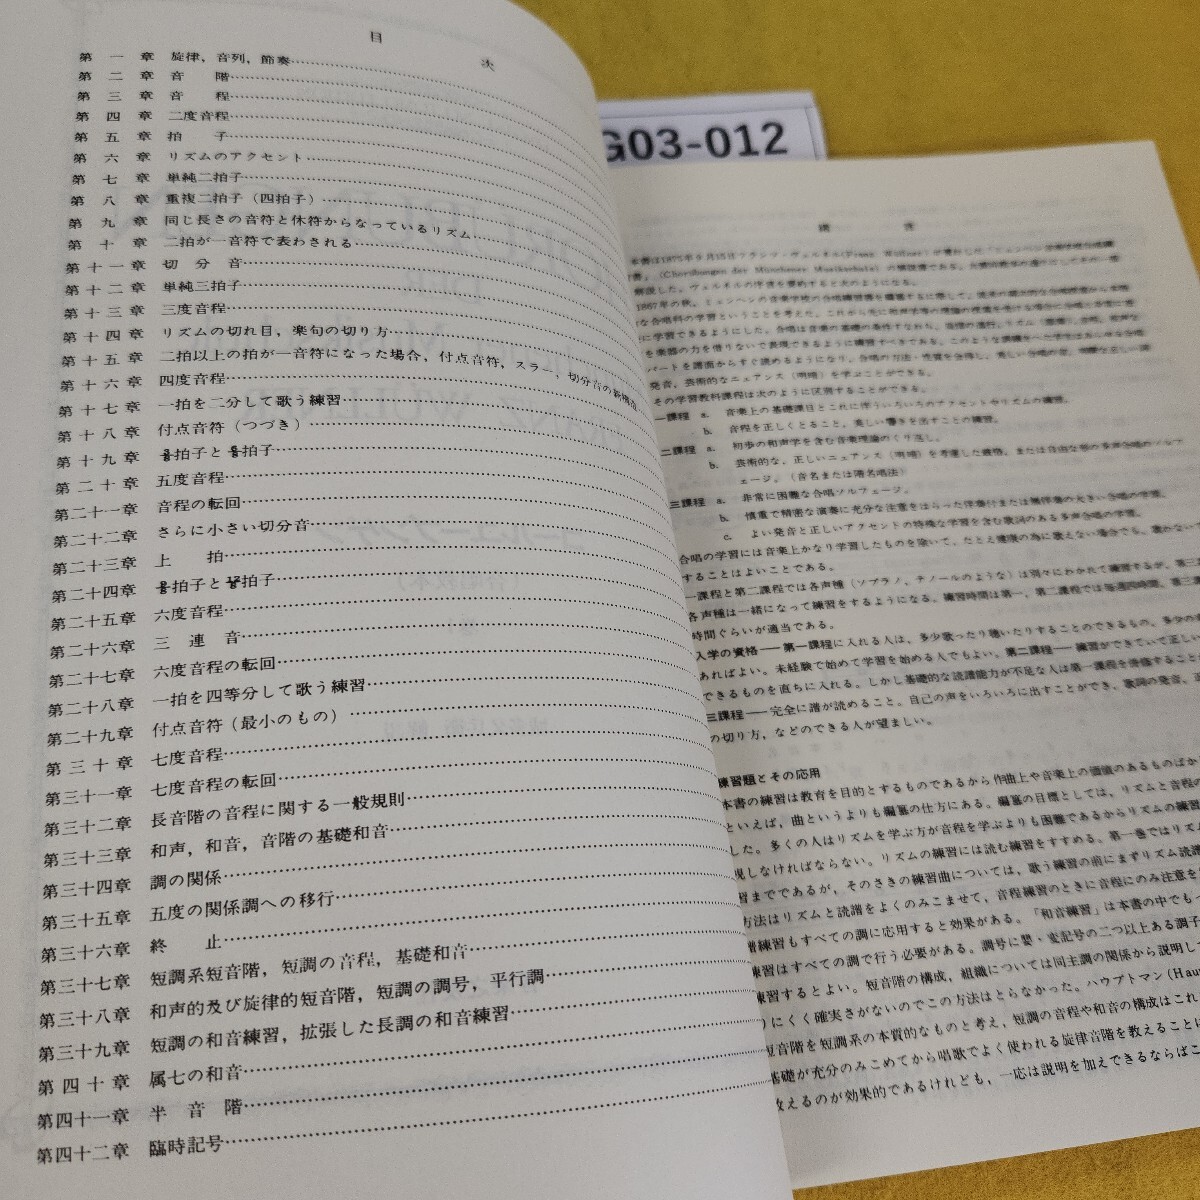 目次
第一章 旋律，音列，節奏
第二章 音階
第三章 音程
第四章 二度音程
第五章 拍子
第六章 リズムのアクセント
第七章 単純二拍子
第八章 重複二拍子（四拍子）
第九章 同じ長さの音符と休符からなっているリズム
第十章 二拍が一音符で表わされる
第十一章 切分音
第十二章 単純三拍子
第十三章 三度音程
第十四章 リズムの切れ目，楽句の切り方
第十五章 二拍以上の拍が一音符になった場合，付点音符，スラー，切分音の新構造
第十六章 四度音程
第十七章 一拍を二分して歌う練習
第十八章 付点音符（つづき）
第十九章 拍子と拍子
第二十章 五度音程
第二十一章 音程の転回
第二十二章 さらに小さい切分音
第二十三章 上拍
第二十四章 拍子と拍子
第二十五章 六度音程
第二十六章 三連音
第二十七章 六度音程の転回
第二十八章 一拍を四等分して歌う練習
第二十九章 付点音符（最小のもの）
第三十章 七度音程
第三十一章 七度音程の転回
第三十二章 長音階の音程に関する一般規則
第三十三章 和声，和音，音階の基礎和音
第三十四章 調の関係
第三十五章 五度の関係調への移行
第三十六章 終止
第三十七章 短調系短音階，短調の音程，基礎和音
第三十八章 和声的及び旋律的短音階，短調の調号，平行調
第三十九章 短調の和音練習，拡張した長調の和音練習
第四十章 属七の和音
第四十一章 半音階
第四十二章 臨時記号
G03-012
その学習教科課程は次のように区別することができる。
一課程 a. 音楽上の基礎課目とこれに伴ういろいろのアクセントやリズムの練習。
b. 音程を正しくとること，美しい響きを出すことの練習。
二課程 a. 初歩の和声学を含む音楽理論のくり返し。
ェージ。（音名または階名唱法）
三課程 a. 非常に困難な合唱ソルフェージ。
b. 慎重で精密な演奏に充分な注意をはらった伴奏付または無伴奏の大きい合唱の学習。
c. よい発音と正しいアクセントの特殊な学習を含む歌詞のある多声合唱の学習。
することはよいことである。
一課程と第二課程では各声種（ソプラノ，テノールのような）は別々にわかれて練習するが，第三
各声種は一緒になって練習をするようになる。練習時間は第一，第二課程では毎週四時間，第三
時間ぐらいが適当である。
入学の資格——第一課程に入れる人は，多少歌ったり聴いたりすることのできるもの，多少の
あればよい。未経験で始めて学習を始める人でもよい。第二課程——練習ができていて正しい
できるものを直ちに入れる。しかし基礎的な読譜能力が不足な人は第一課程を
三課程——完全に譜が読めること。自己の声をいろいろに出すことができ，歌詞の発音，正
の切り方，などのできる人が望ましい。
練習題とその応用
本書の練習は教育を目的とするものであるから作曲上や音楽上の価値のあるものばか
といえば，曲というよりも編纂の仕方にある。編纂の目標としては，リズムと音程の
した。多くの人はリズムを学ぶ方が音程を学ぶよりも困難であるからリズムの練習
視しなければならない。リズムの練習には読む練習をすすめる。第一巻ではリズム
習までであるが，そのさきの練習曲については，歌う練習の前にまずリズム読譜
方法はリズムと読譜をよくのみこませて，音程練習のときに音程にのみ注意を
譜練習もすべての調に応用すると効果がある。「和音練習」は本書の中でもっ
練習はすべての調で行う必要がある。調号に嬰・変記号の二つ以上ある調子
練習するとよい。短音階の構成，組織については同主調の関係から説明し
りにくく確実さがないのでこの方法はとらなかった。ハウプトマン(Hau
短音階を短調系の本質的なものと考え，短調の音程や和音の構成はこれ
基礎が充分のみこめてから唱歌でよく使われる旋律音階を教えることに
教えるのが効果的であるけれども，一応は説明を加えできるならばこ